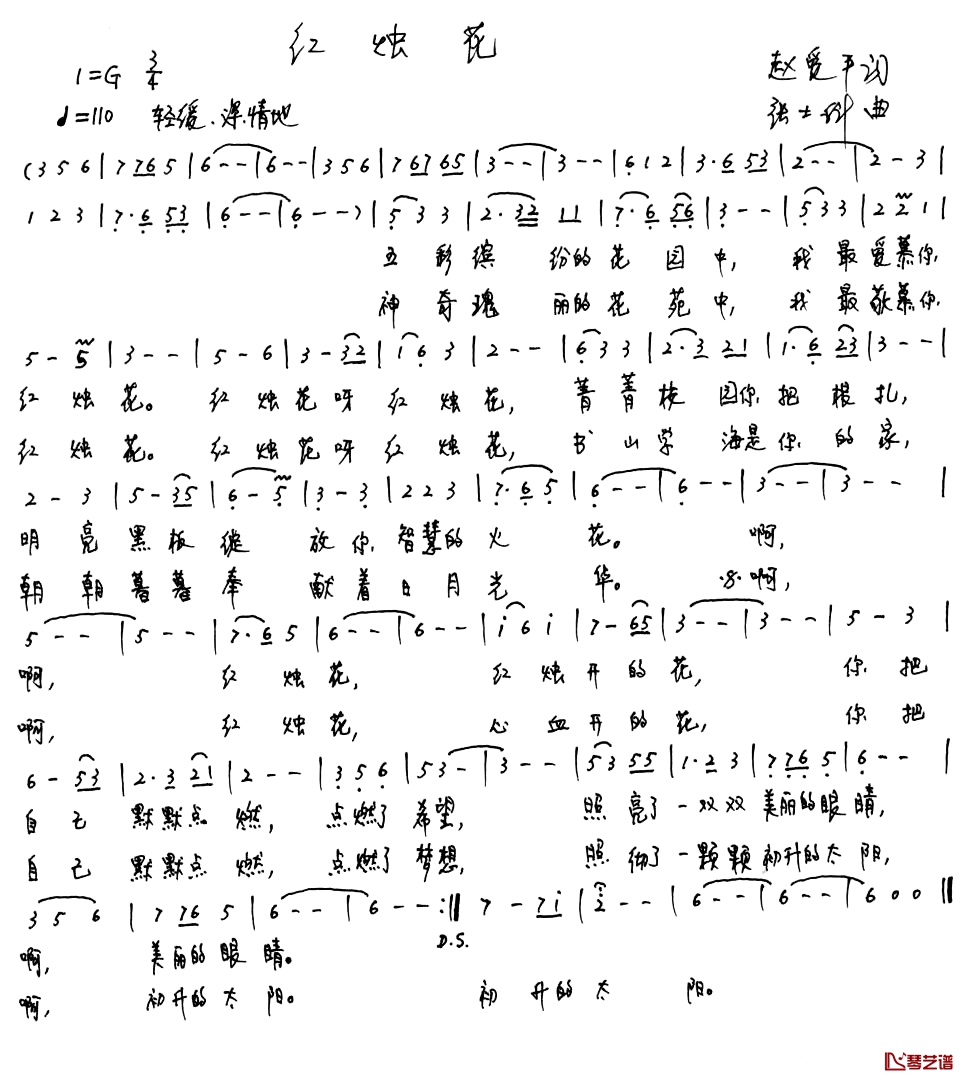 红烛花
1=G 3/4
赵爱平词
♩=110 轻缓、深情地
张士 曲
(3 5 6 | 7 76 5 | 6 - - | 6 - - | 3 5 6 | 7 67 65 | 3 - - | 3 - - | 6 1 2 | 3· 6 53 | 2 - - | 2 - 3 |
1 2 3 | 7· 6 53 | 6 - - | 6 - - ) | 5 3 3 | 2· 32 11 | 7· 6 56 | 3 - - | 5 3 3 | 2 2 1 |
五彩缤纷的花园中，我最爱慕你
神奇瑰丽的花苑中，我最敬慕你
5 - 5 | 3 - - | 5 - 6 | 3 - 32 | i 6 3 | 2 - - | 6 3 3 | 2· 3 21 | 1· 6 23 | 3 - - |
红烛花。红烛花呀红烛花，菁菁校园你把根扎，
红烛花。红烛花呀红烛花，书山学海是你的家，
2 - 3 | 5 - 35 | 6 - 5 | 3 - 3 | 2 2 3 | 7· 6 5 | 6 - - | 6 - - | 3 - - | 3 - - |
明亮黑板绽放你智慧的火花。啊，
朝朝暮暮奉献着日月光华。·S·啊，
5 - - | 5 - - | 7· 6 5 | 6 - - | 6 - - | i 6 i | 7 - 65 | 3 - - | 3 - - | 5 - 3 |
啊，红烛花，红烛开的花，你把
啊，红烛花，心血开的花，你把
6 - 53 | 2· 3 21 | 2 - - | 3 5 6 | 5 3 - | 3 - - | 5 3 55 | 1· 2 3 | 7 76 5 | 6 - - |
自己默默点燃，点燃了希望，照亮了一双双美丽的眼睛，
自己默默点燃，点燃了梦想，照彻了一颗颗初升的太阳，
3 5 6 | 7 76 5 | 6 - - | 6 - - :‖ 7 - 7i | 2 - - | 6 - - | 6 - - | 6 0 0 ‖
D.S.
啊，美丽的眼睛。
啊，初升的太阳。初升的太阳。
琴艺谱